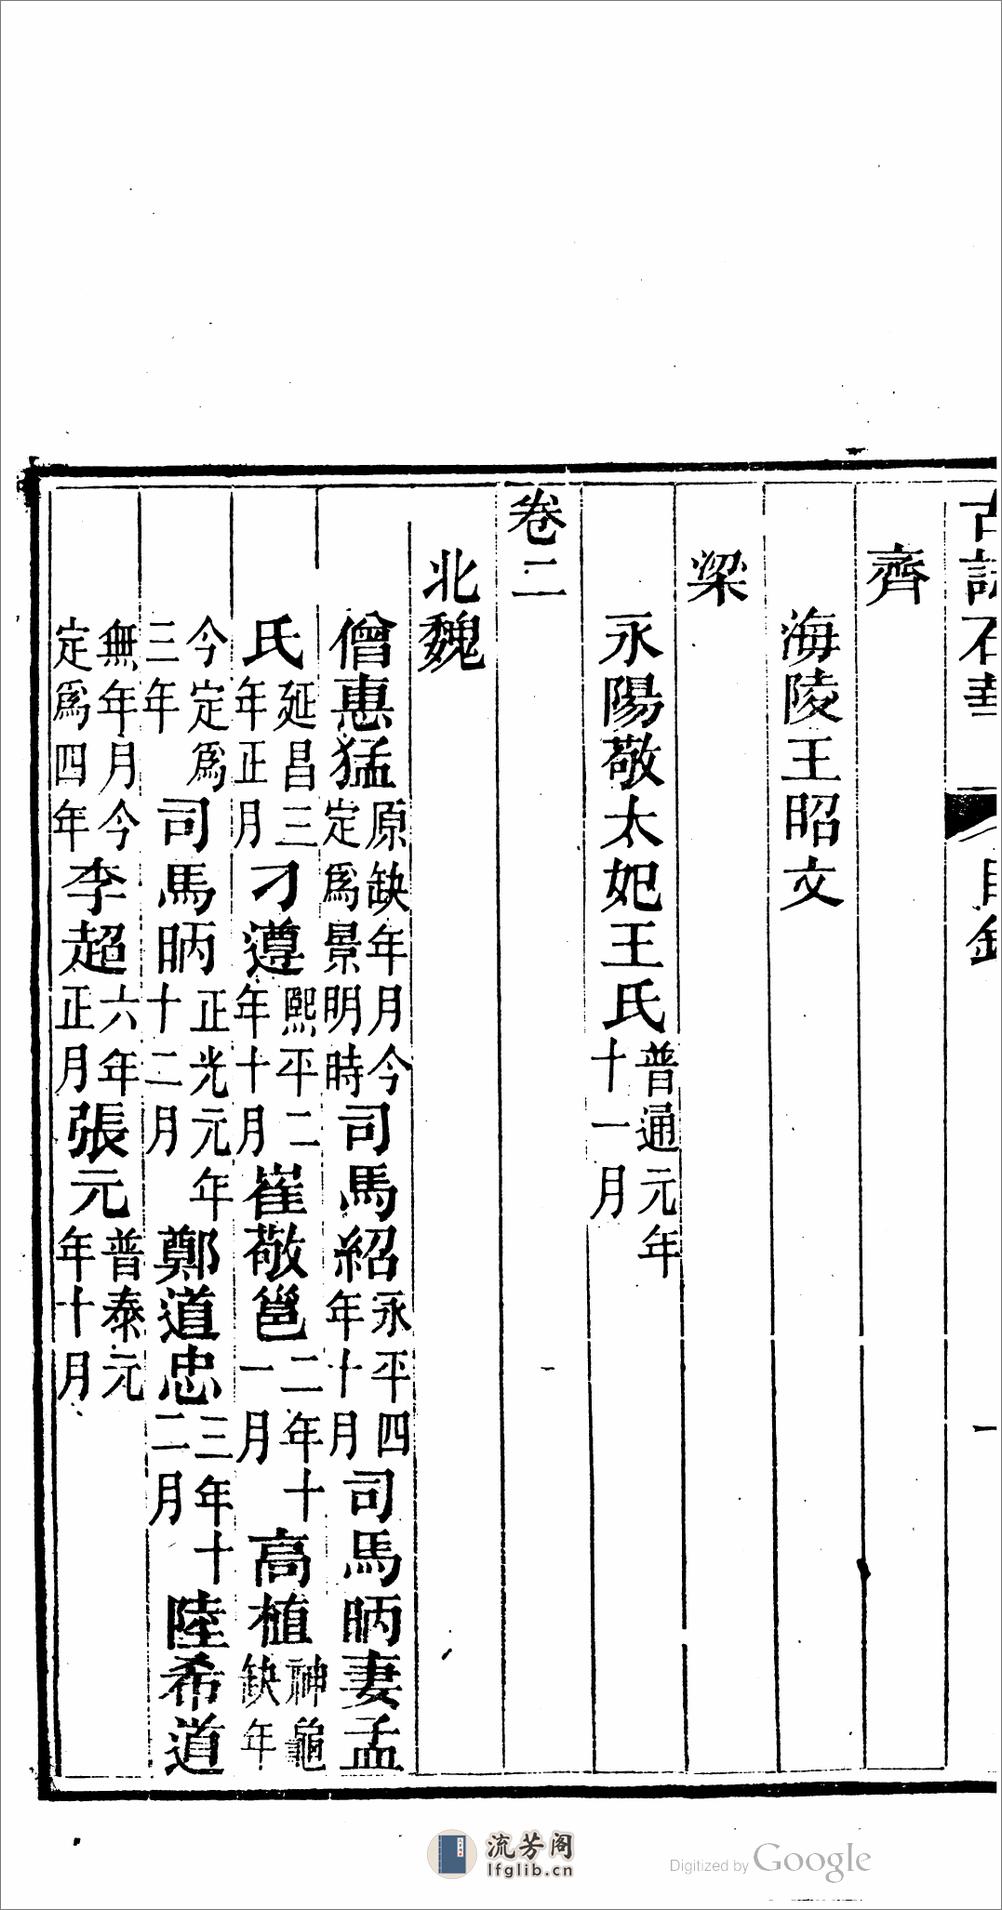 古誌石華 目錄 一
齊
海陵王昭文
梁
永陽敬太妃王氏普通元年十一月
卷二
北魏
僧惠猛原缺年月今定爲景明時司馬紹永平四年十月司馬昞妻孟
氏延昌三年正月刁遵熙平二年十月崔敬邕二年十一月高植神龜缺年
今定爲三年司馬昞正光元年十二月鄭道忠三年十二月陸希道
無年月今定爲四年李超六年正月張元普泰元年十月
流芳阁
lfglib.cn
Digitized by Google